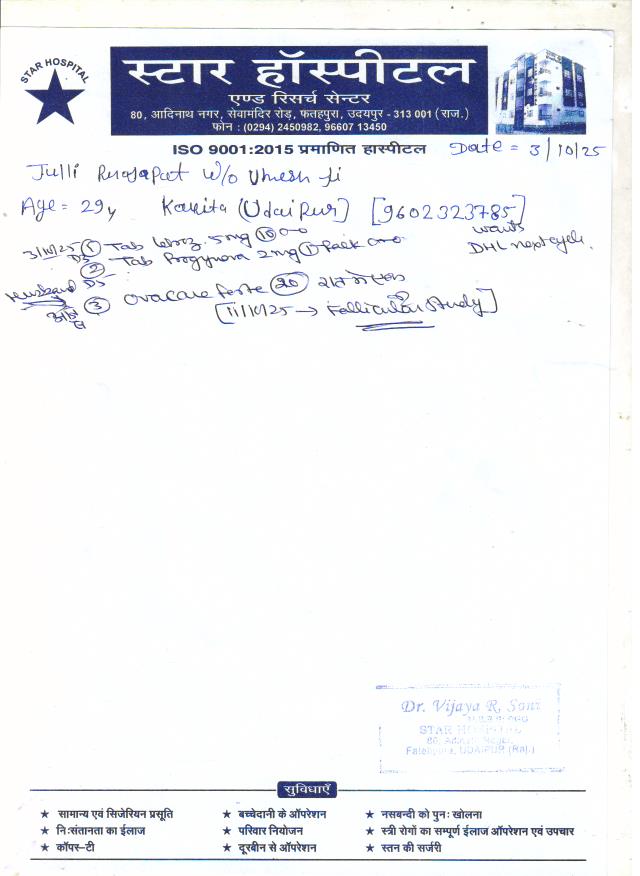 STAR HOSPITAL
स्टार हॉस्पीटल
एण्ड रिसर्च सेन्टर
80, आदिनाथ नगर, सेवामंदिर रोड़, फतहपुरा, उदयपुर - 313 001 (राज.)
फोन : (0294) 2450982, 96607 13450
ISO 9001:2015 प्रमाणित हास्पीटल Date = 3/10/25
Julli W/o Umesh ji
Age = 29y Kavita (Udaipur) [9602323785]
wants
DHL next cycle.
3/10/25 ① Tab 5mg ⑩
D5
② Tab Progynova 2mg ① Pack
Husband D5
③ ovacare forte ⑳ रात में एक
[11/10/25 → Follicular Study]
Dr. Vijaya R. Soni
STAR HOSPITAL
Fatehpura, UDAIPUR (Raj.)
सुविधाएँ
★ सामान्य एवं सिजेरियन प्रसूति ★ बच्चेदानी के ऑपरेशन ★ नसबन्दी को पुनः खोलना
★ निःसंतानता का ईलाज ★ परिवार नियोजन ★ स्त्री रोगों का सम्पूर्ण ईलाज ऑपरेशन एवं उपचार
★ कॉपर-टी ★ दूरबीन से ऑपरेशन ★ स्तन की सर्जरी